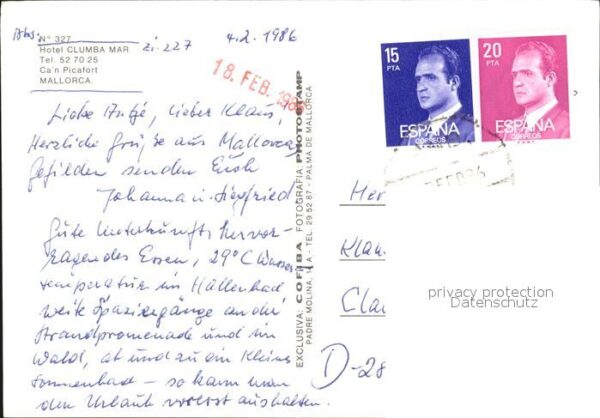 Abs: N° 327
Hotel CLUMBA MAR
Tel. 52 70 25
Ca'n Picafort
MALLORCA.
Zi. 227
4.2.1986
18. FEB. 198
Liebe Antje, lieber Klaus,
Herzliche Grüße aus Mallorca
Gefilden senden Euch
Johanna u. Siegfried
Gute Unterkunft, hervor-
ragendes Essen, 29°C Wasser-
temperatur im Hallenbad
weite Spaziergänge an der
Strandpromenade und im
Wald, ab und zu ein kleines
Sonnenbad - so kann man
den Urlaub vorerst aushalten.
EXCLUSIVA: COFIBA FOTOGRAFIA: PHOTOSTAMP
PADRE MOLINA, 14 A - TEL. 29 52 87 - PALMA DE MALLORCA
15
PTA
ESPAÑA
CORREOS
20
PTA
ESPAÑA
CORREOS
FEB 86
Her
Klau
Cla
D-28
privacy protection
Datenschutz